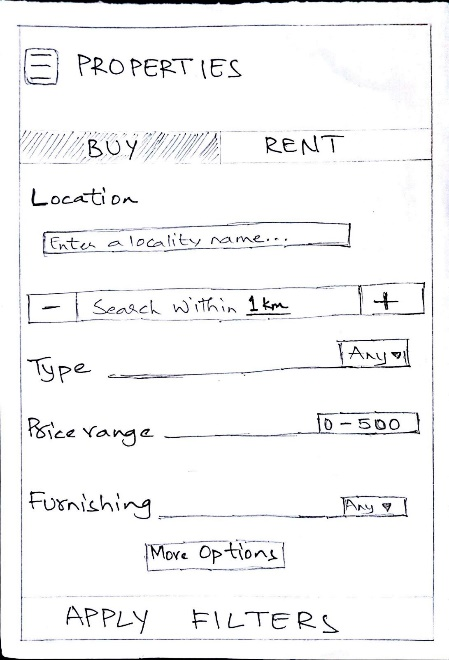 PROPERTIES
BUY RENT
Location
Enter a locality name...
- Search within 1km +
Type Any
Price range 0-500
Furnishing Any
More Options
APPLY FILTERS